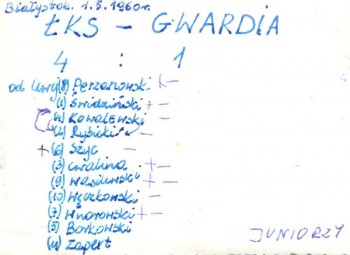 Białystok. 1.5.1960r.
ŁKS - GWARDIA
4 : 1
od lewej (8) Perzanowski -
(1) Świdziński + -
(4) Kowalewski -
(2) Rybicki -
+ (6) Szyc -
(3) Cwalina + -
(9) Wasilewski + -
(10) Wyczkowski -
(7) Wnorowski + -
(5) Borkowski
(11) Zapert
JUNIORZY